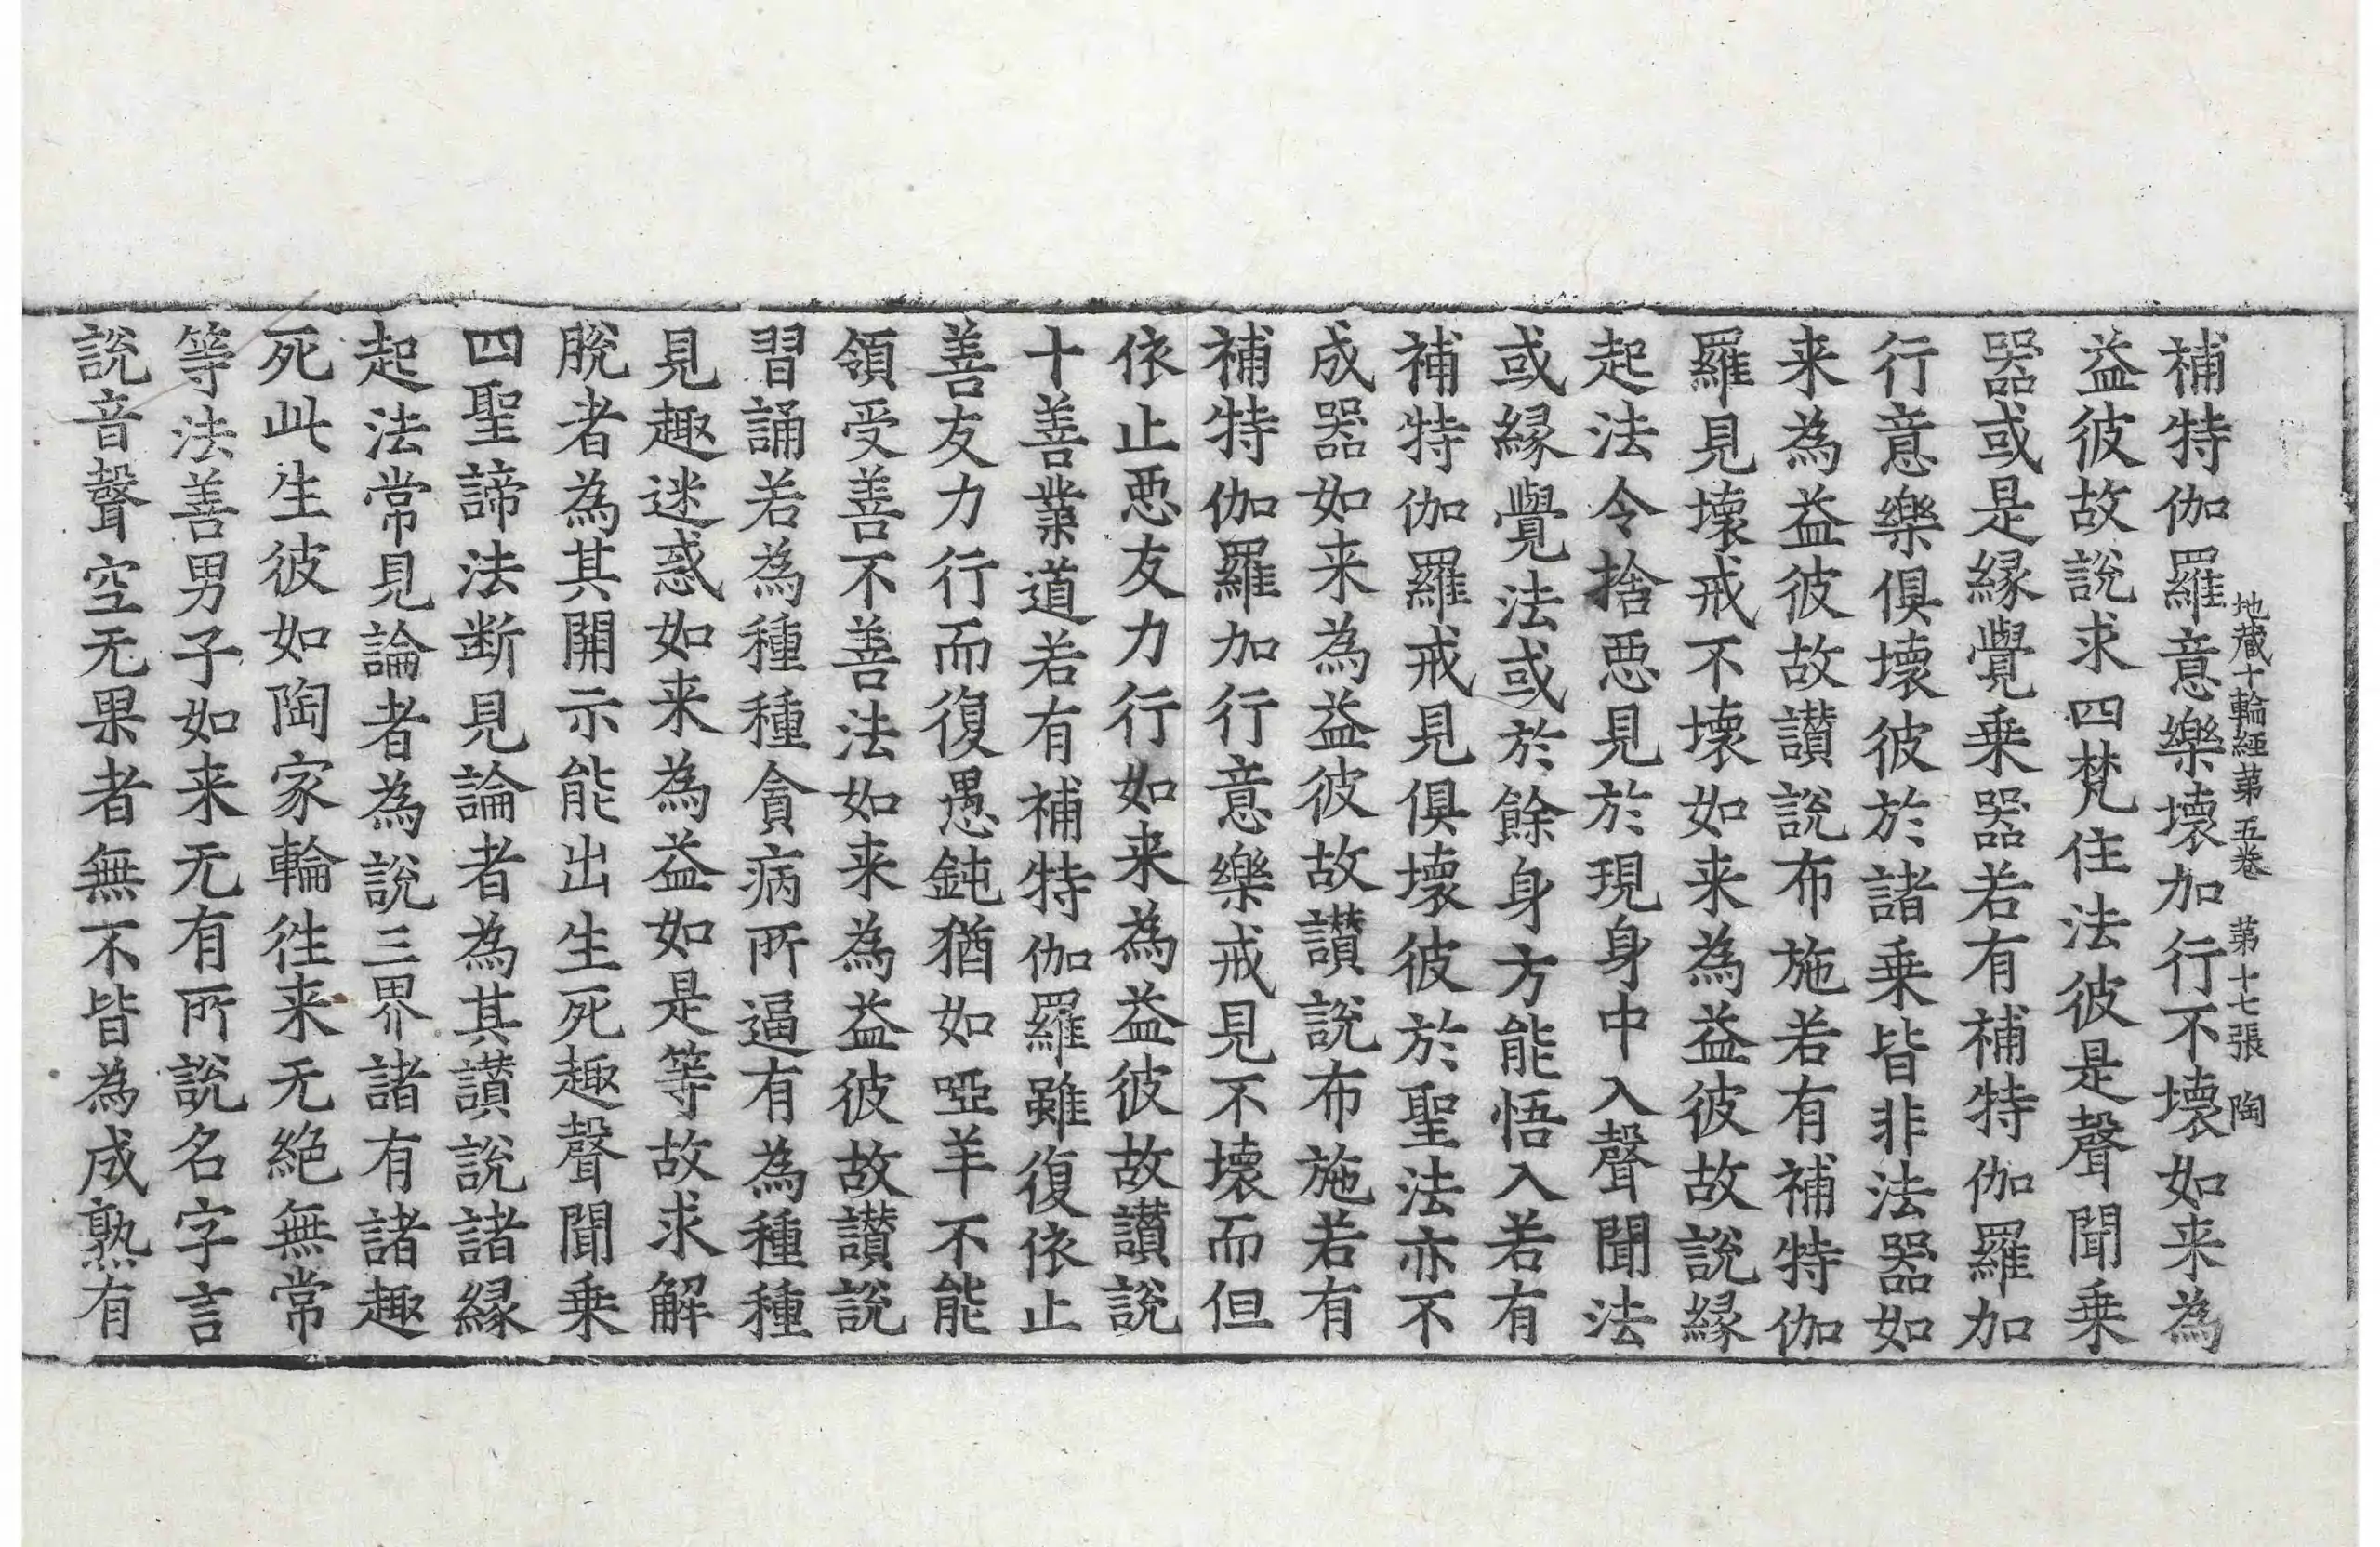 地蔵十輪経第五巻 第十七張 陶
補特伽羅意樂壞加行不壞如来為
益彼故說求四梵住法彼是聲聞乗
器或是縁覺乗器若有補特伽羅加
行意樂俱壞彼於諸乗皆非法器如
来為益彼故讃說布施若有補特伽
羅見壞戒不壞如来為益彼故說縁
起法令捨惡見於現身中入聲聞法
或縁覺法或於餘身方能悟入若有
補特伽羅戒見俱壞彼於聖法亦不
成器如来為益彼故讃說布施若有
補特伽羅加行意樂戒見不壞而但
依止惡友力行如来為益彼故讃說
十善業道若有補特伽羅雖復依止
善友力行而復愚鈍猶如啞羊不能
領受善不善法如来為益彼故讃說
習誦若為種種貪病所逼有為種種
見趣迷惑如来為益如是等故求解
脫者為其開示能出生死趣聲聞乗
四聖諦法断見論者為其讃說諸縁
起法常見論者為說三界諸有諸趣
死此生彼如陶家輪徃来无絶無常
等法善男子如来无有所說名字言
說音聲空无果者無不皆為成熟有